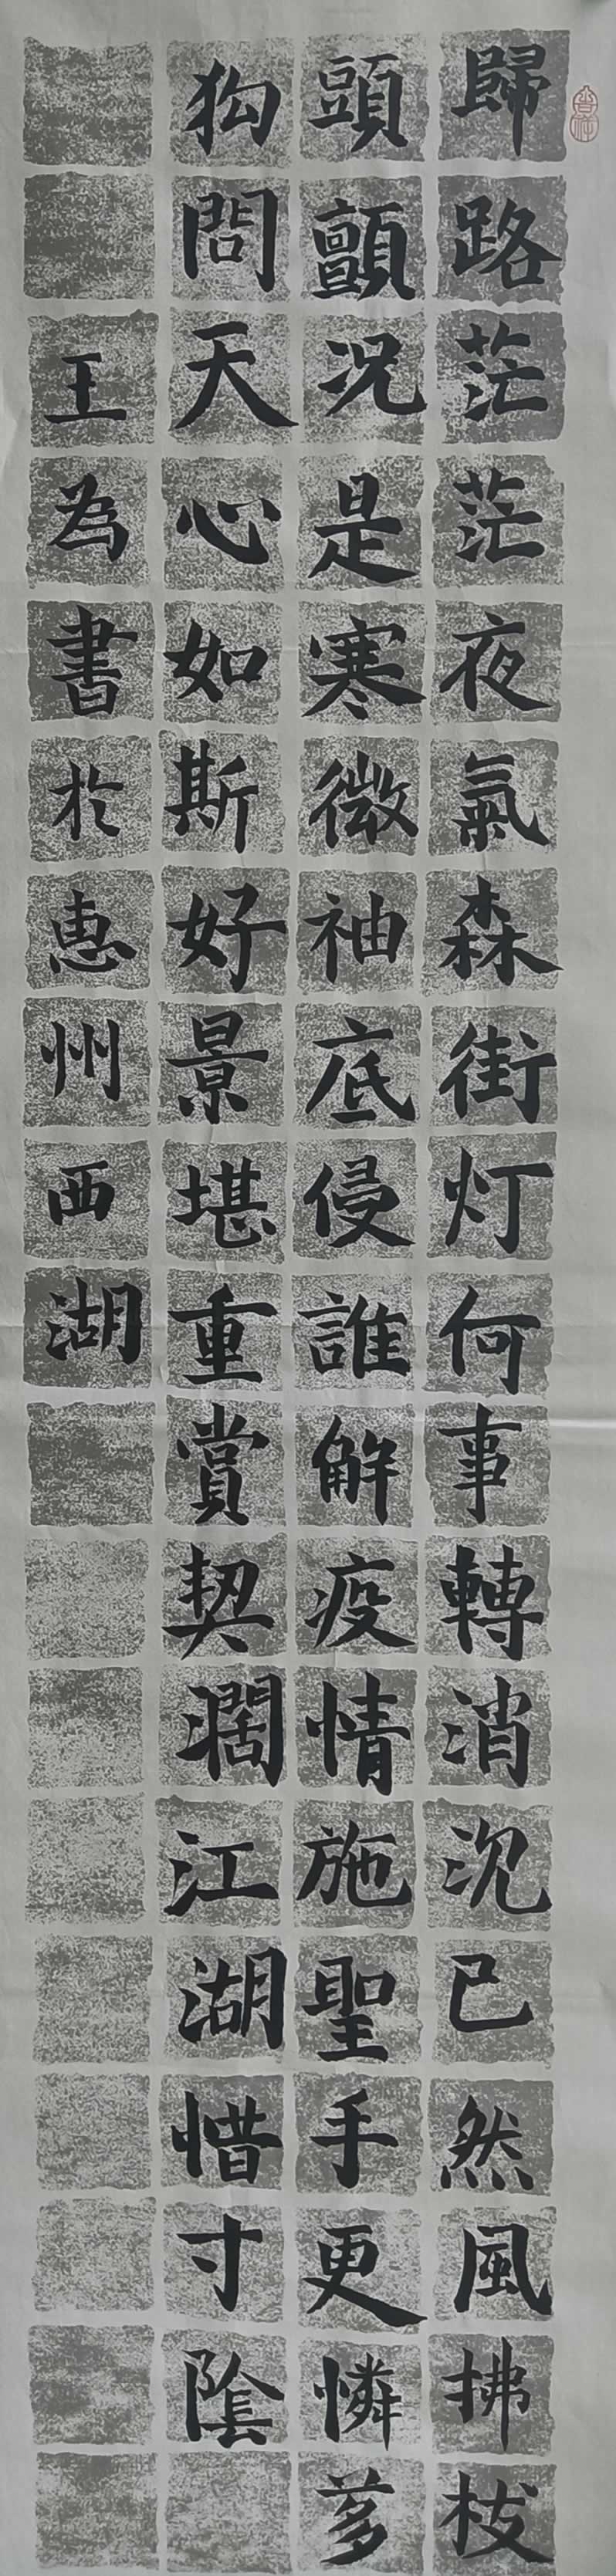 歸路茫茫夜氣森街灯何事轉消沉已然風拂枝
頭顫况是寒微袖底侵誰解疫情施聖手更憐芻
狗問天心如斯好景堪重賞契濶江湖惜寸陰
王為書於惠州西湖